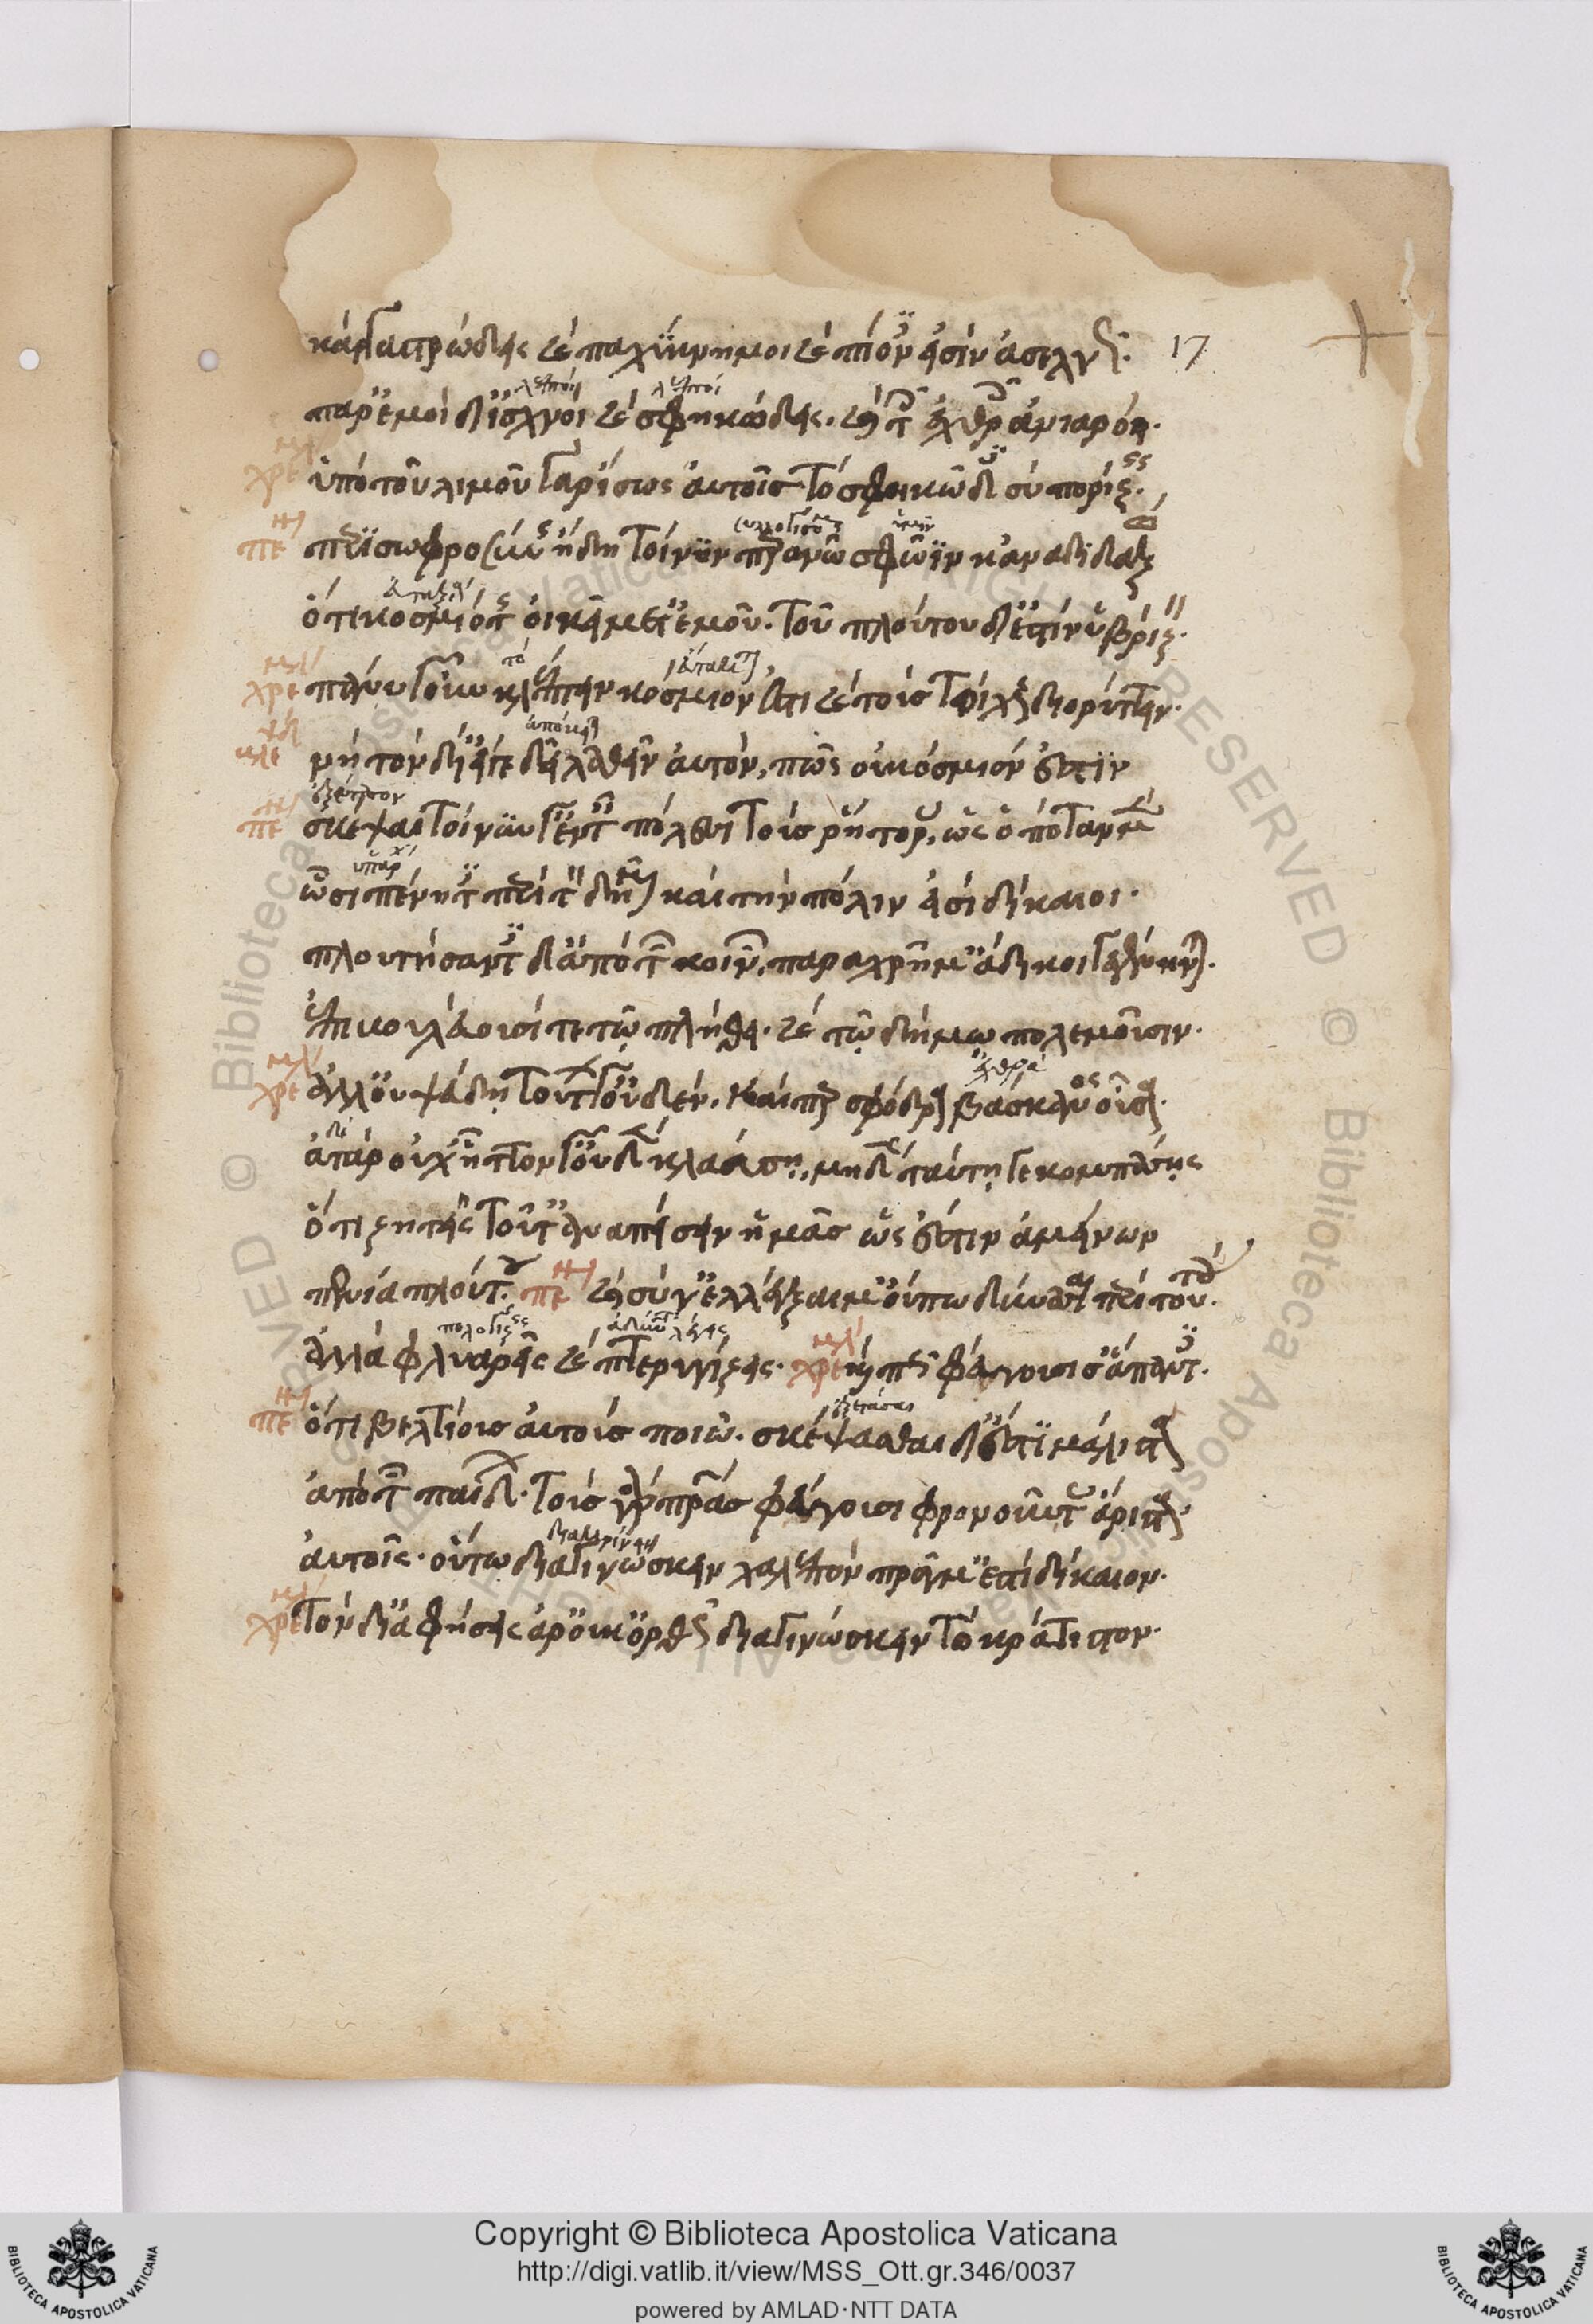 καὶ γαστρώδεις καὶ παχύκνημοι καὶ πίονές εἰσιν ἀσελγῶς. 17
λεπτοί λεπτοί
παρ' ἐμοὶ δ' ἰσχνοὶ καὶ σφηκώδεις. καὶ τοῖς ἐχθροῖς ἀνιαροί.
χρε ὑπὸ τοῦ λιμοῦ γὰρ ἴσως αὐτοῖς τὸ σφηκῶδες σὺ πορίζεις.
πε περὶ σωφροσύνης ἤδη τοίνυν περανῶ σφῶϊν κἀναδιδάξω
ὅτι κοσμιότης οἰκεῖ μετ' ἐμοῦ. τοῦ πλούτου δ' ἐστὶν ὑβρίζειν.
χρε πάνυ γοῦν κλέπτειν κόσμιόν ἐστι καὶ τοὺς τοίχους διορύττειν.
βλε νὴ τὸν δί' εἴ γε δεῖ λαθεῖν αὐτόν, πῶς οὐ κόσμιόν ἐστιν
πε σκέψαι τοίνυν ἐν ταῖς πόλεσι τοὺς ῥήτορας, ὡς ὁπόταν μὲν
ὦσι πένητες περὶ τὸν δῆμον καὶ τὴν πόλιν εἰσὶ δίκαιοι.
πλουτήσαντες δ' ἀπὸ τῶν κοινῶν, παραχρῆμ' ἄδικοι γεγένηνται.
ἐπιβουλεύουσί τε τῷ πλήθει. καὶ τῷ δήμῳ πολεμοῦσιν.
ἐχθρά
χρε ἀλλ' οὐ ψεύδῃ τούτων γ' οὐδέν. καίπερ σφόδρα βάσκανος οὖσα.
ἀτὰρ οὐχ ἧττόν γ' οὐδὲν κλαύσῃ, μηδὲν ταύτῃ γε κομπάσῃς
ὅτι ζητεῖς τοῦτ' ἀναπείσειν ἡμᾶς ὡς ἔστιν ἀμείνων
πενία πλούτου. πε καὶ σύ γ' ἐλέγξαι μ' οὔπω δύνασαι περὶ τούτου.
ἀλλὰ φλυαρεῖς καὶ πτερυγίζεις. χρε καὶ πῶς φεύγουσί σ' ἅπαντες.
ἐξετάσαι
πε ὅτι βελτίους αὐτοὺς ποιῶ. σκέψασθαι δ' ἔστι μάλιστα
ἀπὸ τῶν παίδων. τοὺς γὰρ πατέρας φεύγουσι φρονοῦντας ἄριστα
διακρίνειν
αὐτοῖς. οὕτω διαγινώσκειν χαλεπὸν πρᾶγμ' ἐστὶ δίκαιον.
χρε τὸν δία φήσεις ἆρ' οὐκ ὀρθῶς διαγινώσκειν τὸ κράτιστον.
Copyright © Biblioteca Apostolica Vaticana
http://digi.vatlib.it/view/MSS_Ott.gr.346/0037
powered by AMLAD·NTT DATA